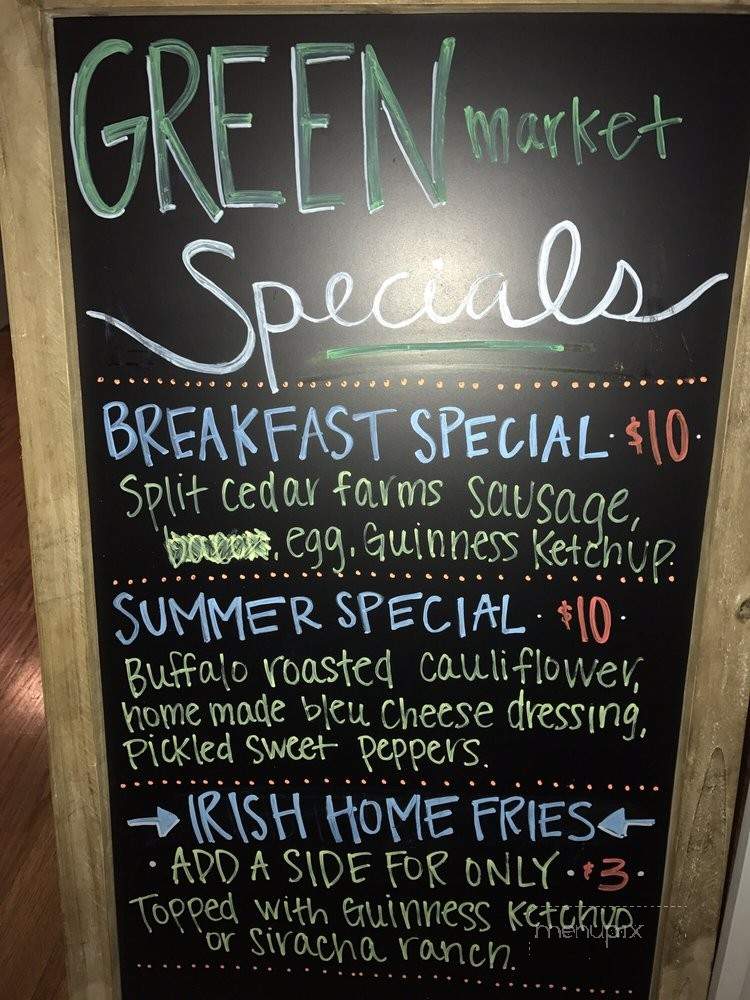 GREEN market
Specials
BREAKFAST SPECIAL · $10 ·
Split cedar farms sausage,
, egg, Guinness Ketchup.
SUMMER SPECIAL · $10 ·
Buffalo roasted cauliflower,
home made bleu cheese dressing,
Pickled sweet peppers.
→ IRISH HOME FRIES ←
· ADD A SIDE FOR ONLY · $3 ·
Topped with Guinness Ketchup
or siracha ranch.
menupix